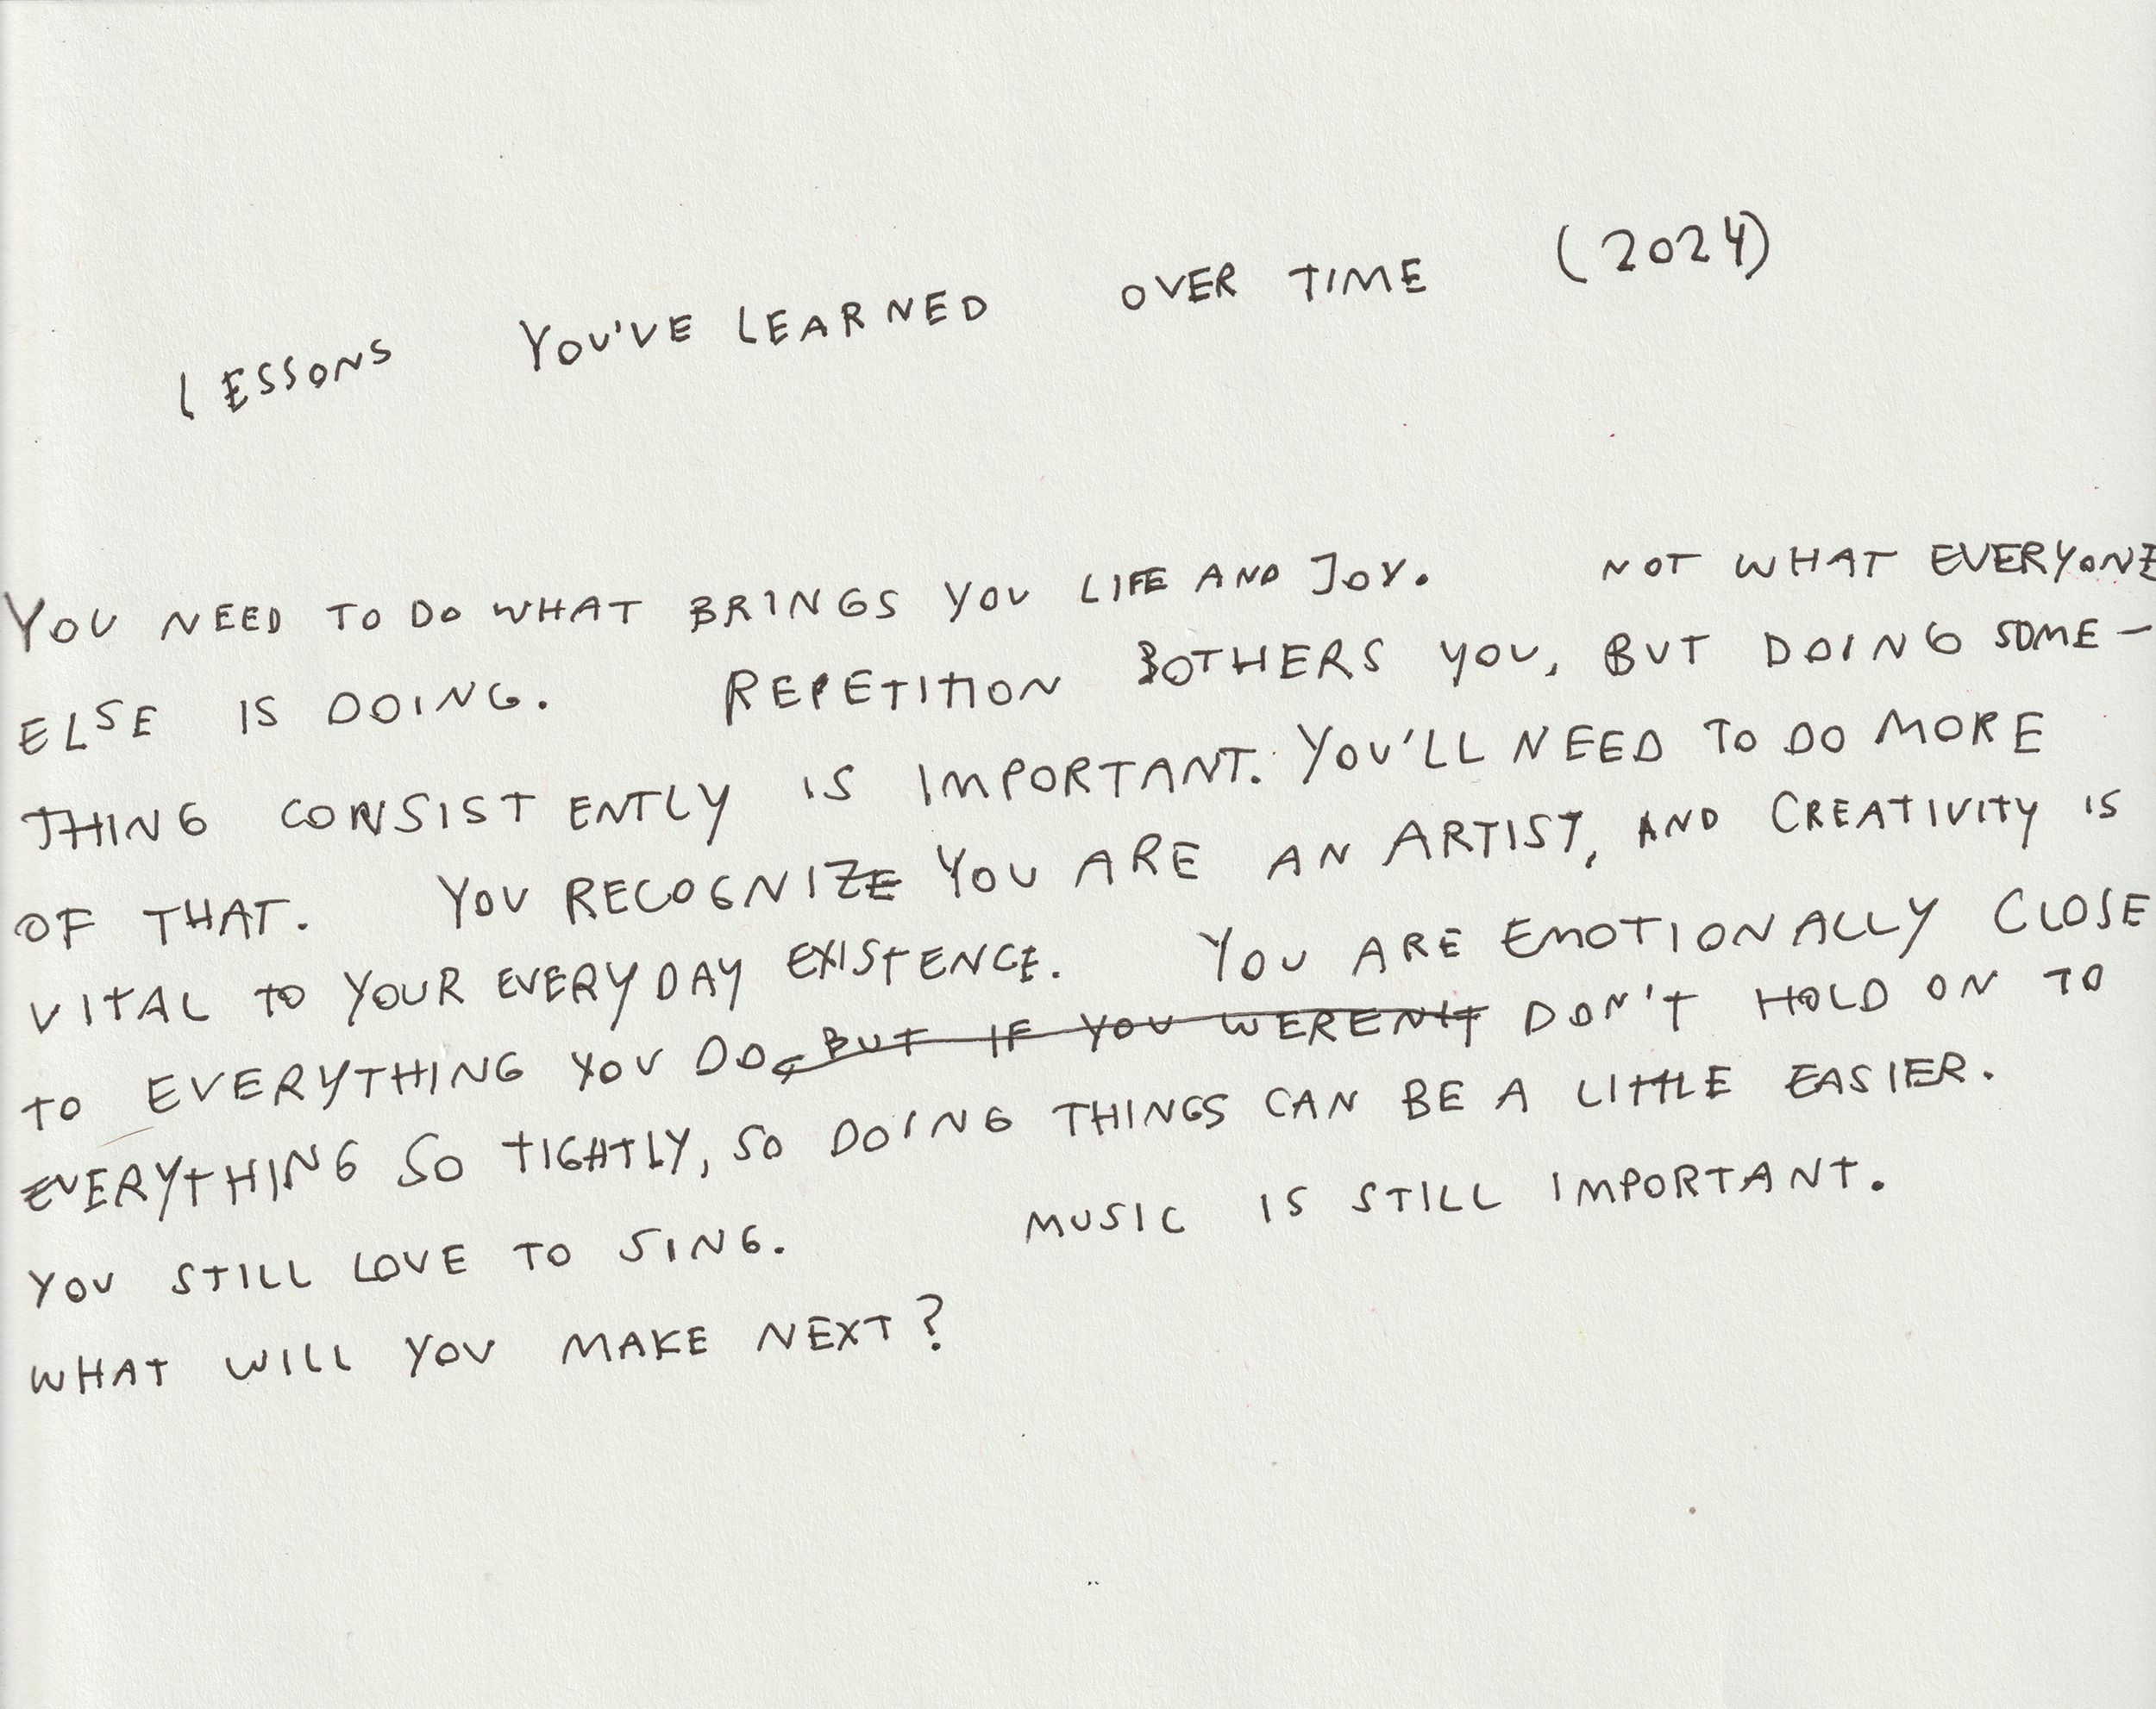 LESSONS YOU'VE LEARNED OVER TIME (2024)
YOU NEED TO DO WHAT BRINGS YOU LIFE AND JOY. NOT WHAT EVERYONE
ELSE IS DOING. REPETITION BOTHERS YOU, BUT DOING SOME-
THING CONSISTENTLY IS IMPORTANT. YOU'LL NEED TO DO MORE
OF THAT. YOU RECOGNIZE YOU ARE AN ARTIST, AND CREATIVITY IS
VITAL TO YOUR EVERYDAY EXISTENCE. YOU ARE EMOTIONALLY CLOSE
TO EVERYTHING YOU DO, BUT IF YOU WEREN'T DON'T HOLD ON TO
EVERYTHING SO TIGHTLY, SO DOING THINGS CAN BE A LITTLE EASIER.
YOU STILL LOVE TO SING. MUSIC IS STILL IMPORTANT.
WHAT WILL YOU MAKE NEXT?